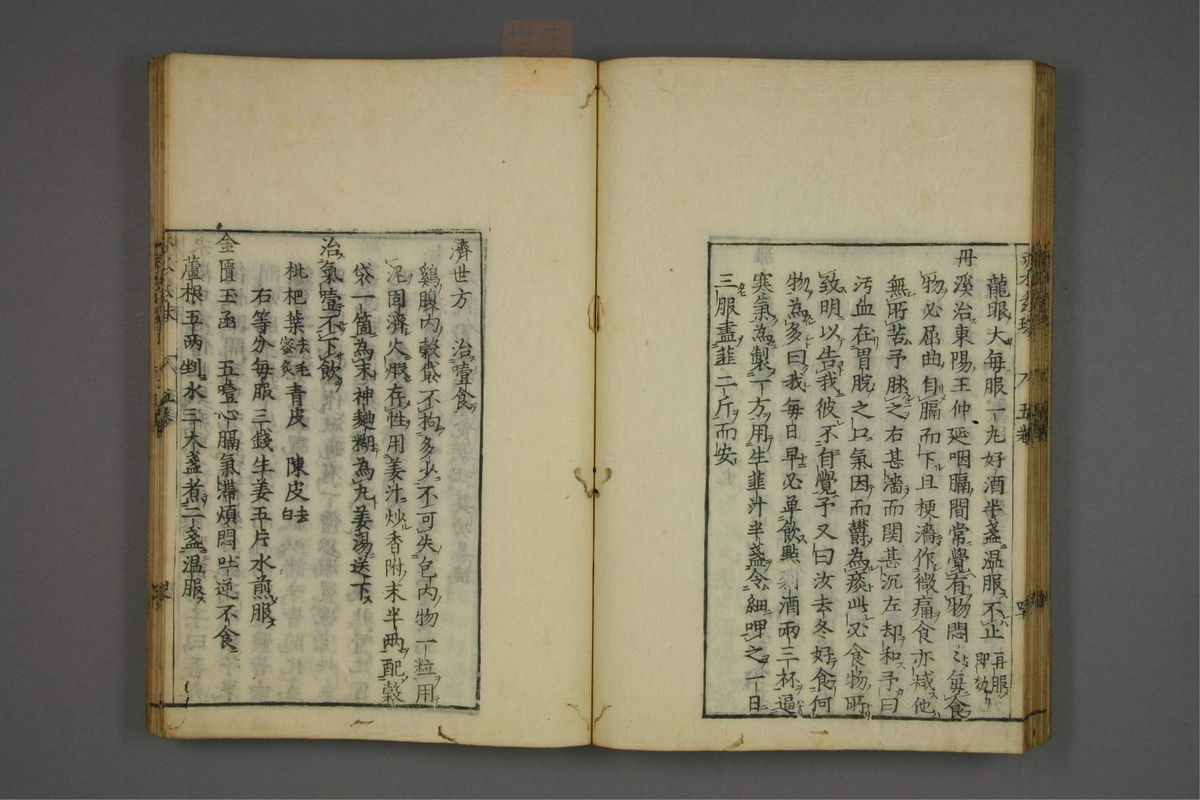 龍眼大每服一丸好酒半盞温服不止再服即効
丹溪治東陽王仲延咽膈間常覺有物悶〻每食
物必屈曲自膈而下且梗濇作微痛食亦减他
無所苦予脉之右甚濇而関甚沉左却和予曰
汚血在胃脘之口氣因而欝為痰此必食物所
致明以告我彼不自覺予又曰汝去冬好食何
物為多曰我每日早必単飲㸃剁酒兩三杯逼
寒氣為製一方用生韮汁半盞令細呷之一日
三服盡韮二斤而安
濟世方　治噎食
鷄腹内穀袋不拘多少不可失包内物一粒用
泥固濟火煅存性用姜汁炒香附末半两配穀
袋一箇為末神麯糊為丸姜湯送下
治氣噎不下飲
枇杷葉去毛蜜炙青皮　陳皮去白
右等分每服三錢生姜五片水煎服
金匱玉函　五噎心膈氣滯煩悶吐逆不食
蘆根五两剉水三大盞煮二盞温服
五卷